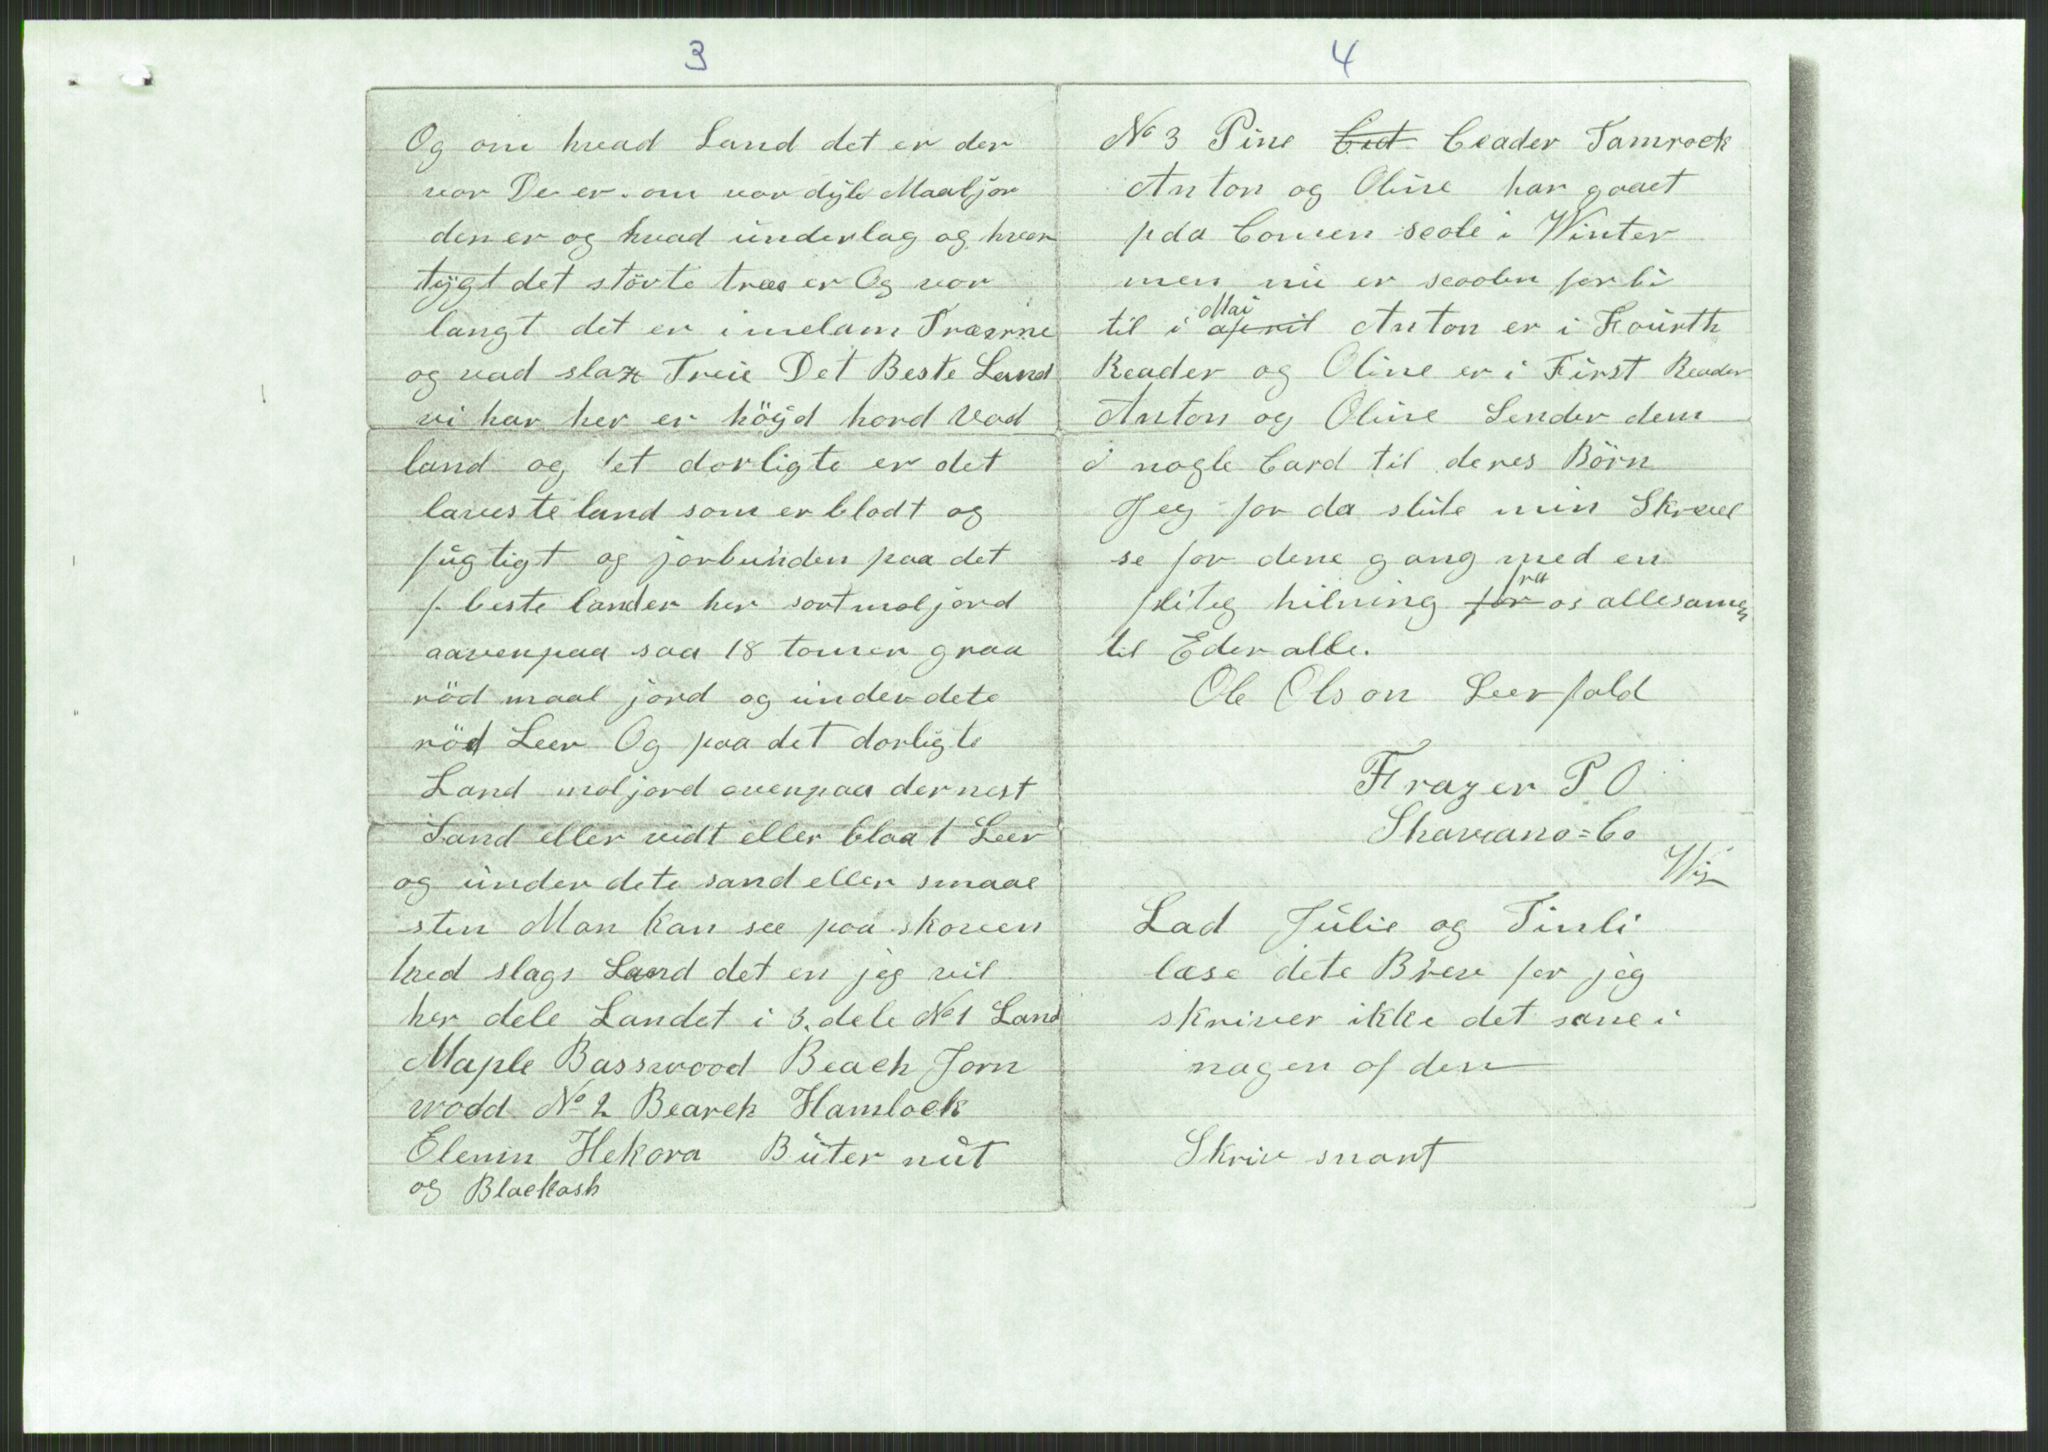 3
Og om hvad Land det er der
vor De er om vor dyb Maaljor
den er og hvad underlag og hvor
tygt det störte træe er Og vor
langt det er imelam Træerne
og vad slax Treie Det Beste Land
vi har her er höyd hord Vad
land og det dorligte er det
laveste land som er blodt og
fugtigt og jorbunden paa det
beste lander her sortmoljord
aavenpaa saa 18 tomer graa
röd maal jord og under dete
röd Leer Og paa det dorligte
Land moljord ovenpaa dernest
Sand eller vidt eller blaat Leer
og under dete sand eller smaae
sten Man kan see paa skoven
hvd slags Land det en jeg vil
her dele Landet i 3. dele No 1 Land
Maple Basswood Beach Jorn
wodd No 2 Bearch Hamlock
Elenin Hekora Büter nüt
og Blackash
4
No 3 Pine Ced Ceader Tamrock
Anton og Oline har gaaet
paa Comen scole i Winter
men nu er scoolen forbi
til i april Mai Anton er i Fourth
Reader og Oline er i First Reader
Anton og Oline Sender dem
nogle Card til deres Börn
Jeg for da slute min Skrivel
se for dene gang med en
fliteg hilning for fra os allesamen
til Eder alle.
Ole Olson Leerfald
Frazer P O
Shawano=Co
Wis
Lad Julie og Tinli
læse dete Brev for jeg
skriver ikke det same i
nagen of den
Skriv snart